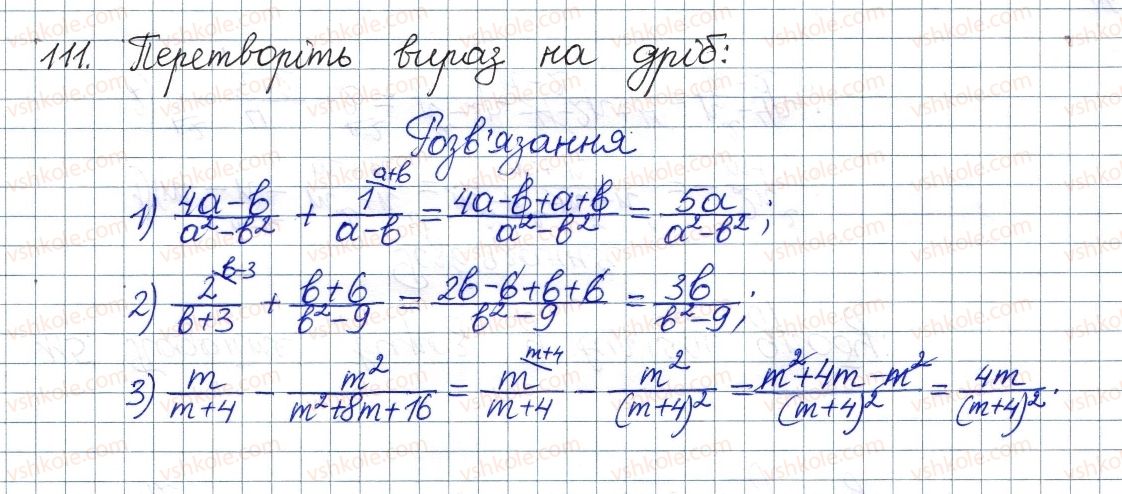 111. Перетворіть вираз на дріб:
Розв'язання
1) (4a-b)/(a²-b²) + 1/(a-b) ^(a+b) = (4a-b+a+b)/(a²-b²) = 5a/(a²-b²);
2) 2/(b+3) ^(b-3) + (b+6)/(b²-9) = (2b-6+b+6)/(b²-9) = 3b/(b²-9);
3) m/(m+4) - m²/(m²+8m+16) = m/(m+4) ^(m+4) - m²/(m+4)² = (m²+4m-m²)/(m+4)² = 4m/(m+4)².